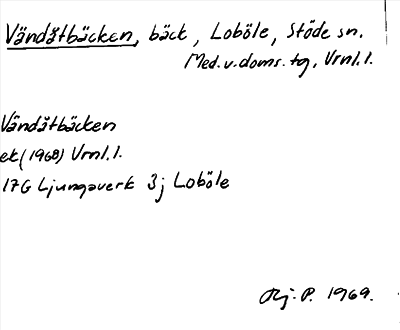 Vändåtbäcken, bäck, Loböle, Stöde sn.
Med.v.doms.tg, Vrnl.l.
Vändåtbäcken
ek (1968) Vrnl.l.
17G Ljungaverk 3j Loböle
P. 1969.